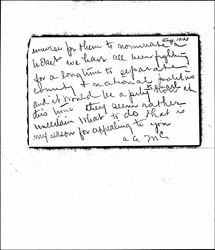 Aug 1922
unwise for them to nominate a
ticket we have all been fighting
for a long time to separate
county & national politics
and it would be a pity to start at
this time they seem rather
uncertain what to do that is
my reason for appealing to you